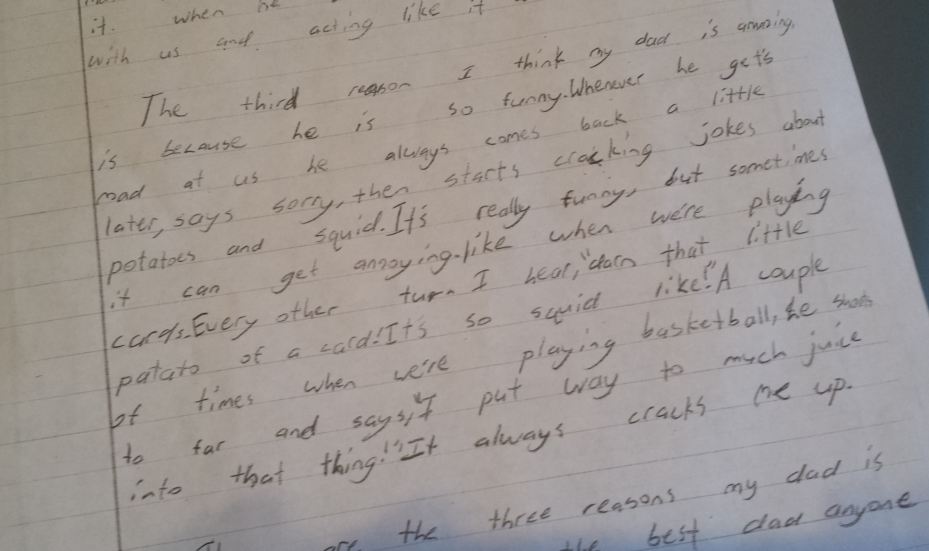 it. when he
with us and acting like it
The third reason I think my dad is amazing,
is because he is so funny. Whenever he gets
mad at us he always comes back a little
later, says sorry, then starts cracking jokes about
potatoes and squid. It's really funny, but sometimes
it can get annoying. like when we're playing
cards. Every other turn I hear, "darn that little
patato of a card! It's so squid like!" A couple
of times when we're playing basketball, he shoots
to far and says, "I put way to much juice
into that thing!" It always cracks me up.
are the three reasons my dad is
the best dad anyone